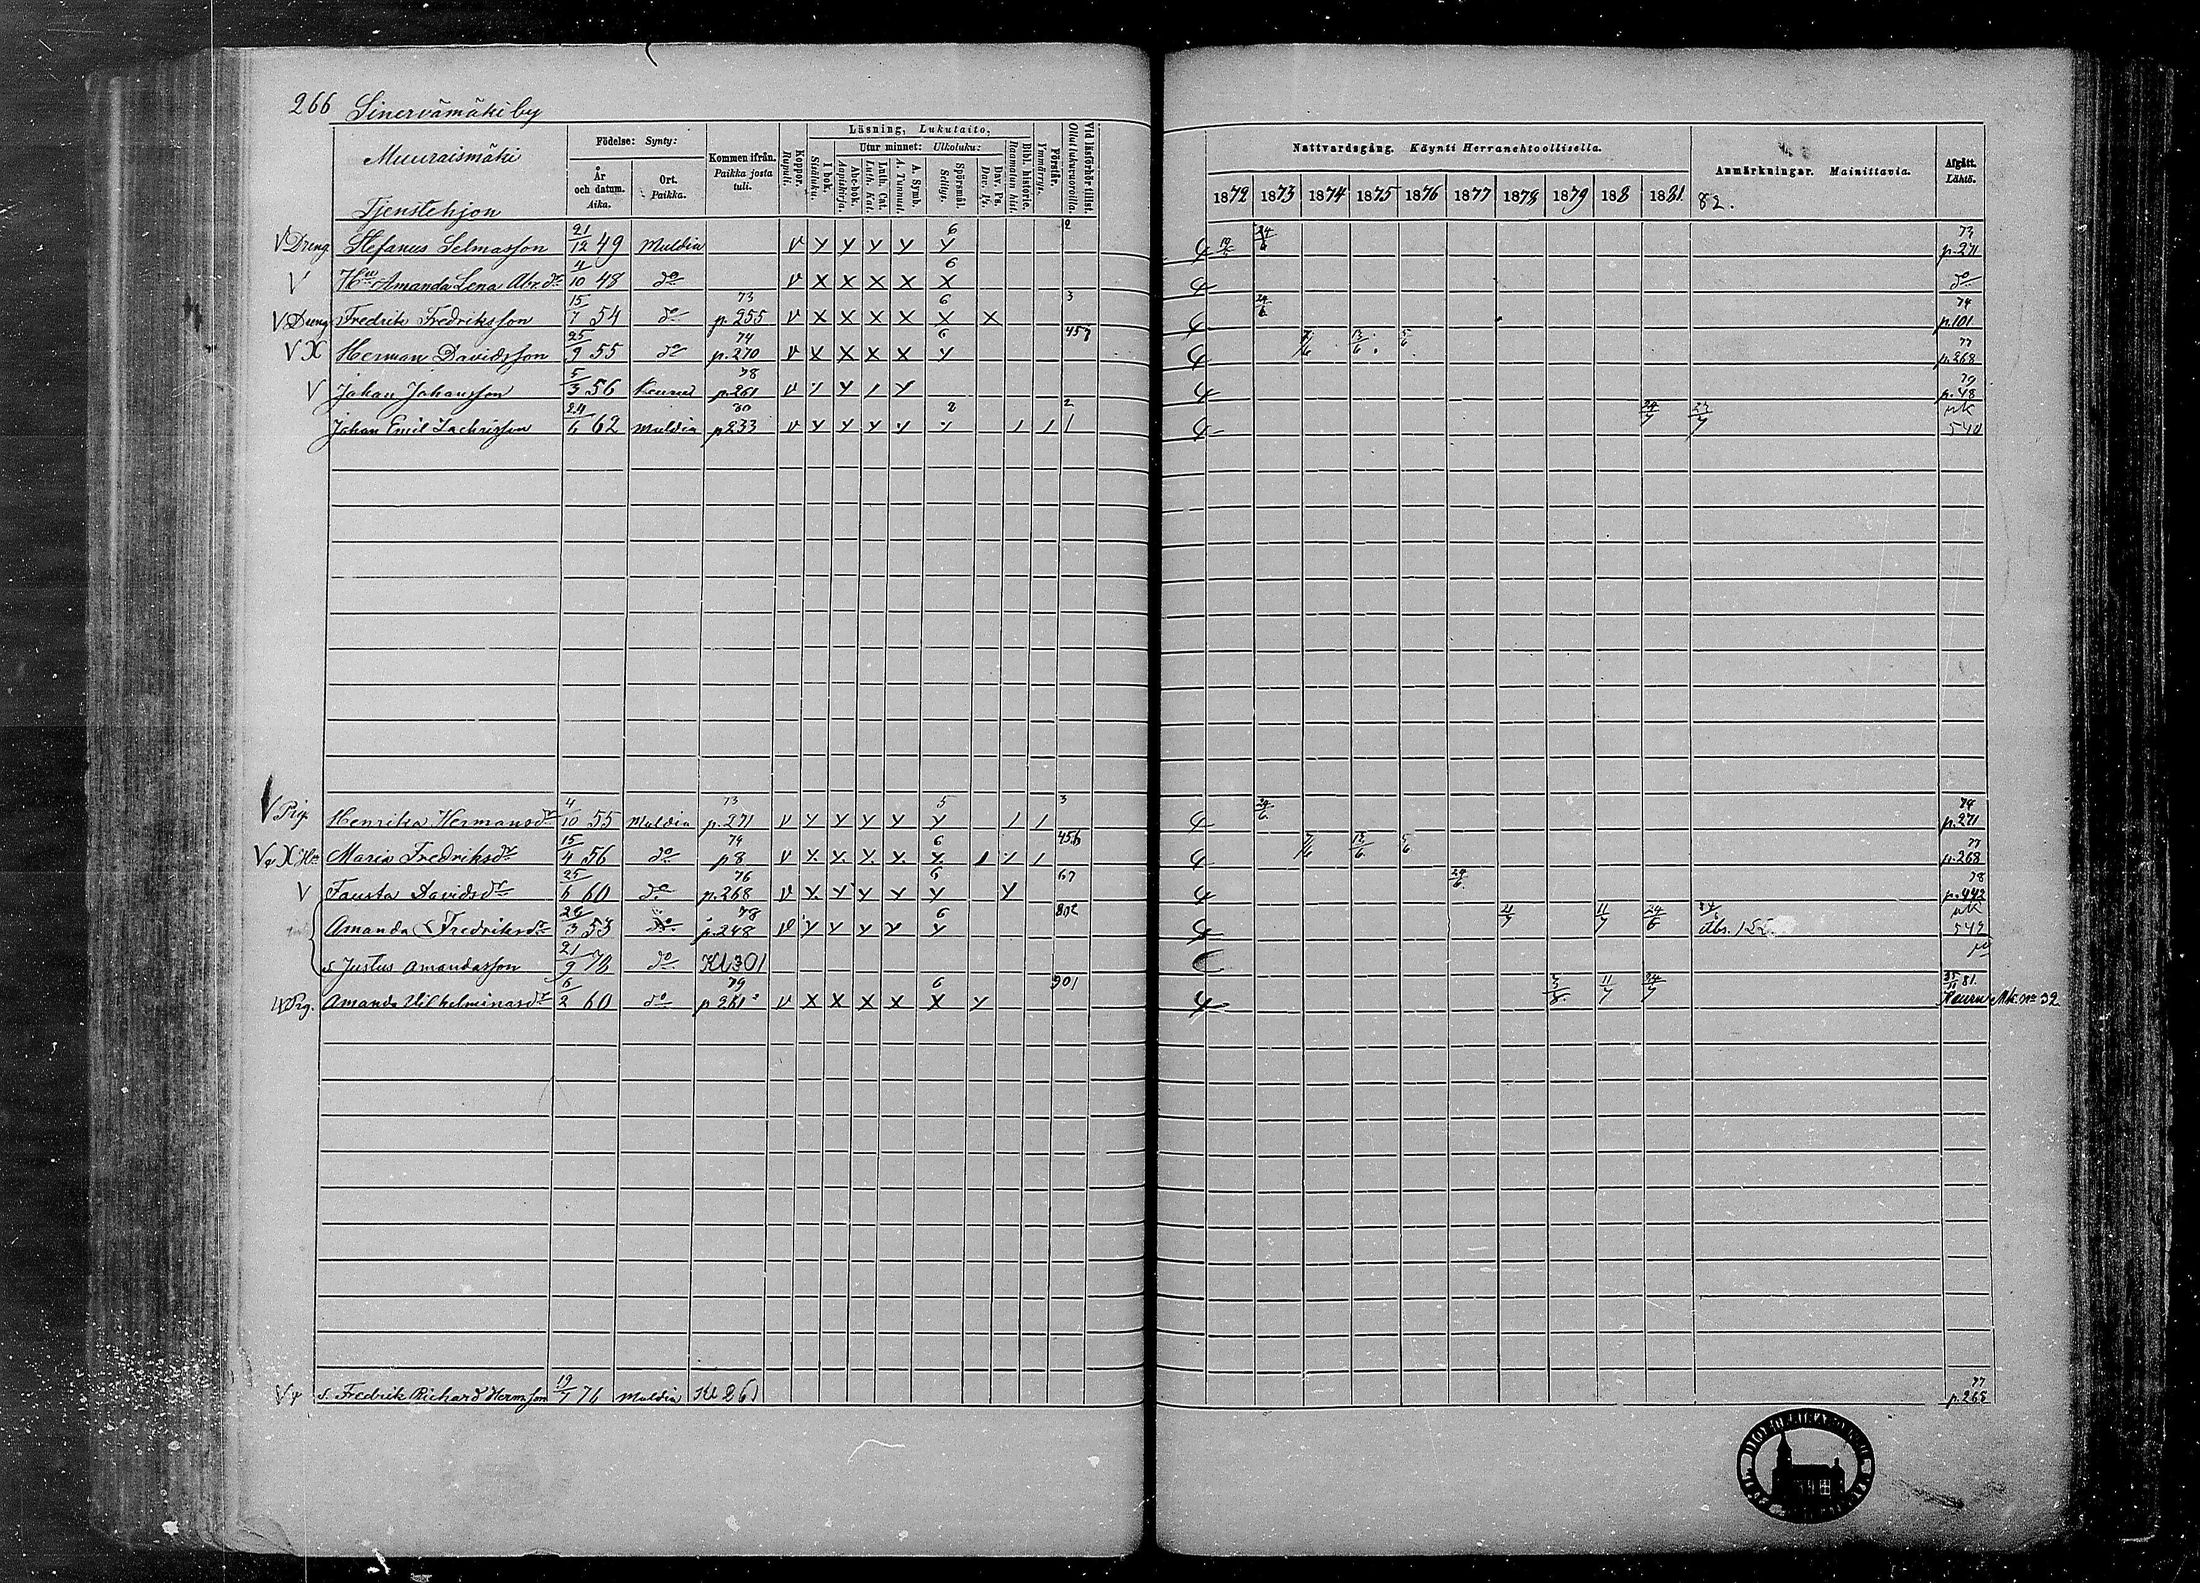 266 Sinervämäki by
Muuraismäki
Tjenstehjon
Födelse: Synty:
År och datum. Aika.
Ort. Paikka.
Kommen ifrån. Paikka josta tuli.
Koppor. Rupuli.
Läsning, Lukutaito.
I bok. Sisäluku.
Utur minnet: Ulkoluku:
Abc-bok. Aapiskirja.
Luth. Cat. Luth. Kat.
A. Symb. A. Tunnust.
Spörsmål. Selitys.
Dav. Ps. Dav. Ps.
Bibl. historie. Raamatun hist.
Förstår. Ymmärrys.
Vid läsförhör tillst. Ollut lukuvuoroilla.
Nattvardsgång. Käynti Herranehtoollisella.
1872 1873 1874 1875 1876 1877 1878 1879 188 1881 82.
Anmärkningar. Mainittavia.
Afgått. Lähtö.
V Dreng Stefanus Selmasson 21/12 49 Muldia v 6 2 24/6 73 p.271
V Hu Amanda Lena Abr.dr 4/10 48 do v x x x x x 6 do
V Dreng Fredrik Fredriksson 15/7 54 do 73 p.255 v x x x x x x 6 3 24/6 74 p.101
V X Herman Davidsson 25/9 55 do 74 p.270 v x x x x 6 457 7/6 13/6 5/6 77 p.268
V Johan Johansson 5/3 56 Keuru 78 p.261 v 79 p.48
Johan Emil Zachrisson 24/6 62 Muldia 80 p233 v 2 2 24/7 23/7 uk 540
V Pig. Henrika Hermansdr 4/10 55 Muldia 73 p.271 v 5 3 24/6 74 p.271
V X Hu Maria Fredriksdr 15/4 56 do 74 p8 v 6 456 7/6 13/6 5/6 77 p.268
V Fausta Davidsdr 25/6 60 do 76 p.268 v 6 67 24/6 78 p.442
Amanda Fredriksdr 26/3 53 do 78 p.248 v 6 802 21/7 11/7 24/6 uk 542
s Justus Amandasson 21/9 78 do Kl 301
V Pig. Amanda Vilhelminasdr 6/2 60 do 79 p 261 v x x x x x 6 901 3/8 11/7 24/7 25/11 81. Keuru Mk. no 32
s. Fredrik Richard Hermsson 19/1 76 Muldia Kl 261 77 p.268